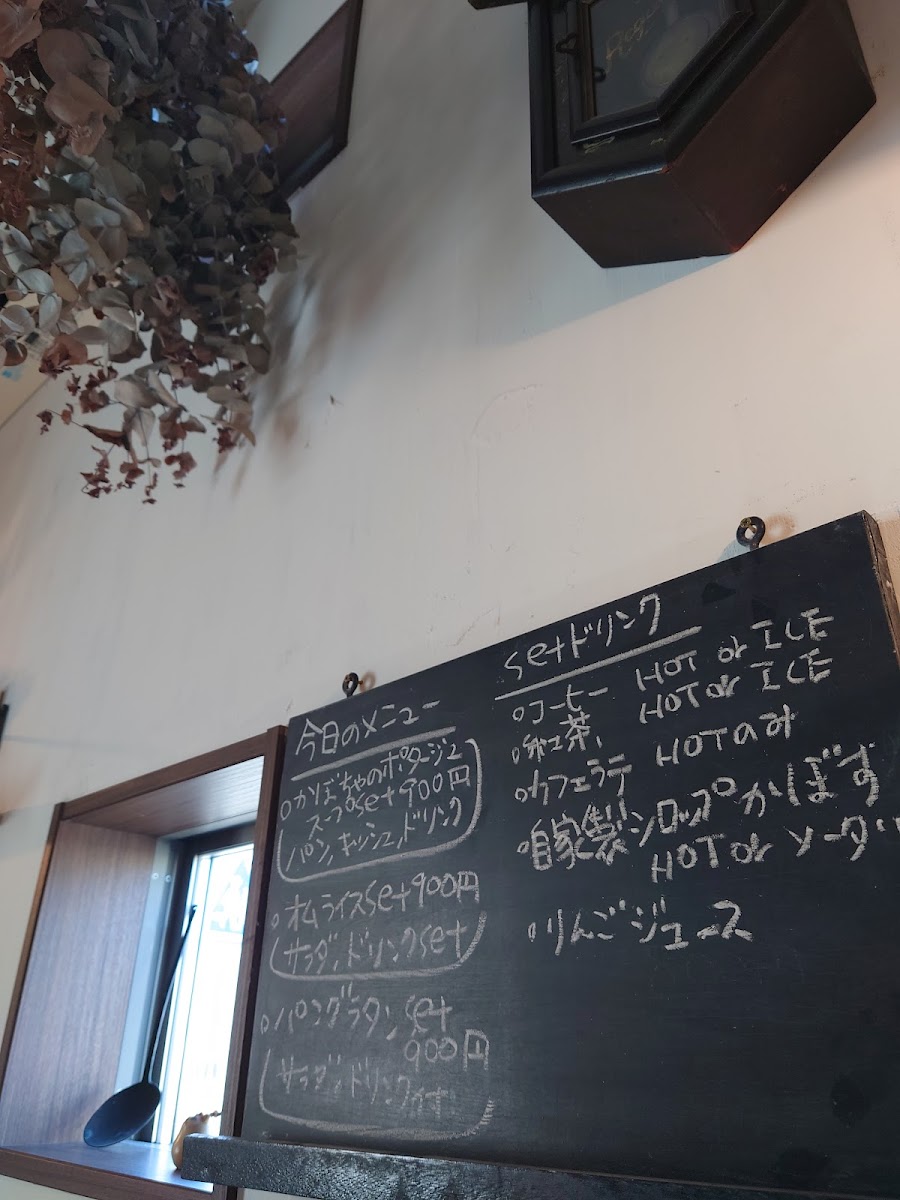 今日のメニュー
○かぼちゃのポタージュ
スープset 900円
(パン、キッシュ、ドリンク)
○オムライスset 900円
(サラダ、ドリンクset)
○パングラタンset
900円
(サラダ、ドリンク付)
setドリンク
○コーヒー HOT or ICE
○紅茶、 HOT or ICE
○カフェラテ HOTのみ
○自家製シロップかぼす
HOT or ソーダ
○りんごジュース